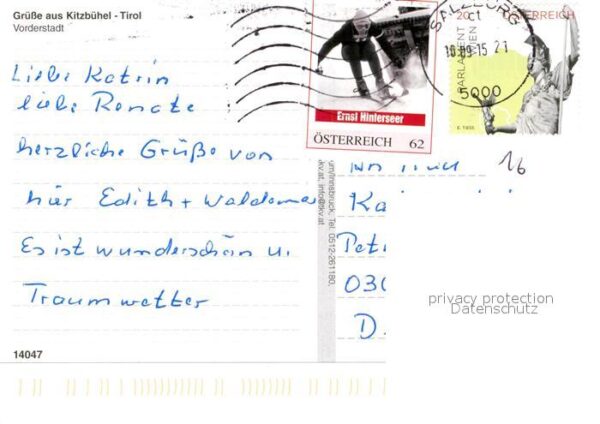 Grüße aus Kitzbühel - Tirol
Vorderstadt
Liebe Katrin
liebe Renate
herzliche Grüße von
hier Edith + Waldemar
Es ist wunderschön u.
Traumwetter
14047
Ernst Hinterseer
ÖSTERREICH 62
SALZBURG
10.09.15 21
5000
20 ct
ÖSTERREICH
PARLAMENT
WIEN
um/Innsbruck, Tel. 0512-261180,
16
Ka
Pet
030
D.
privacy protection
Datenschutz